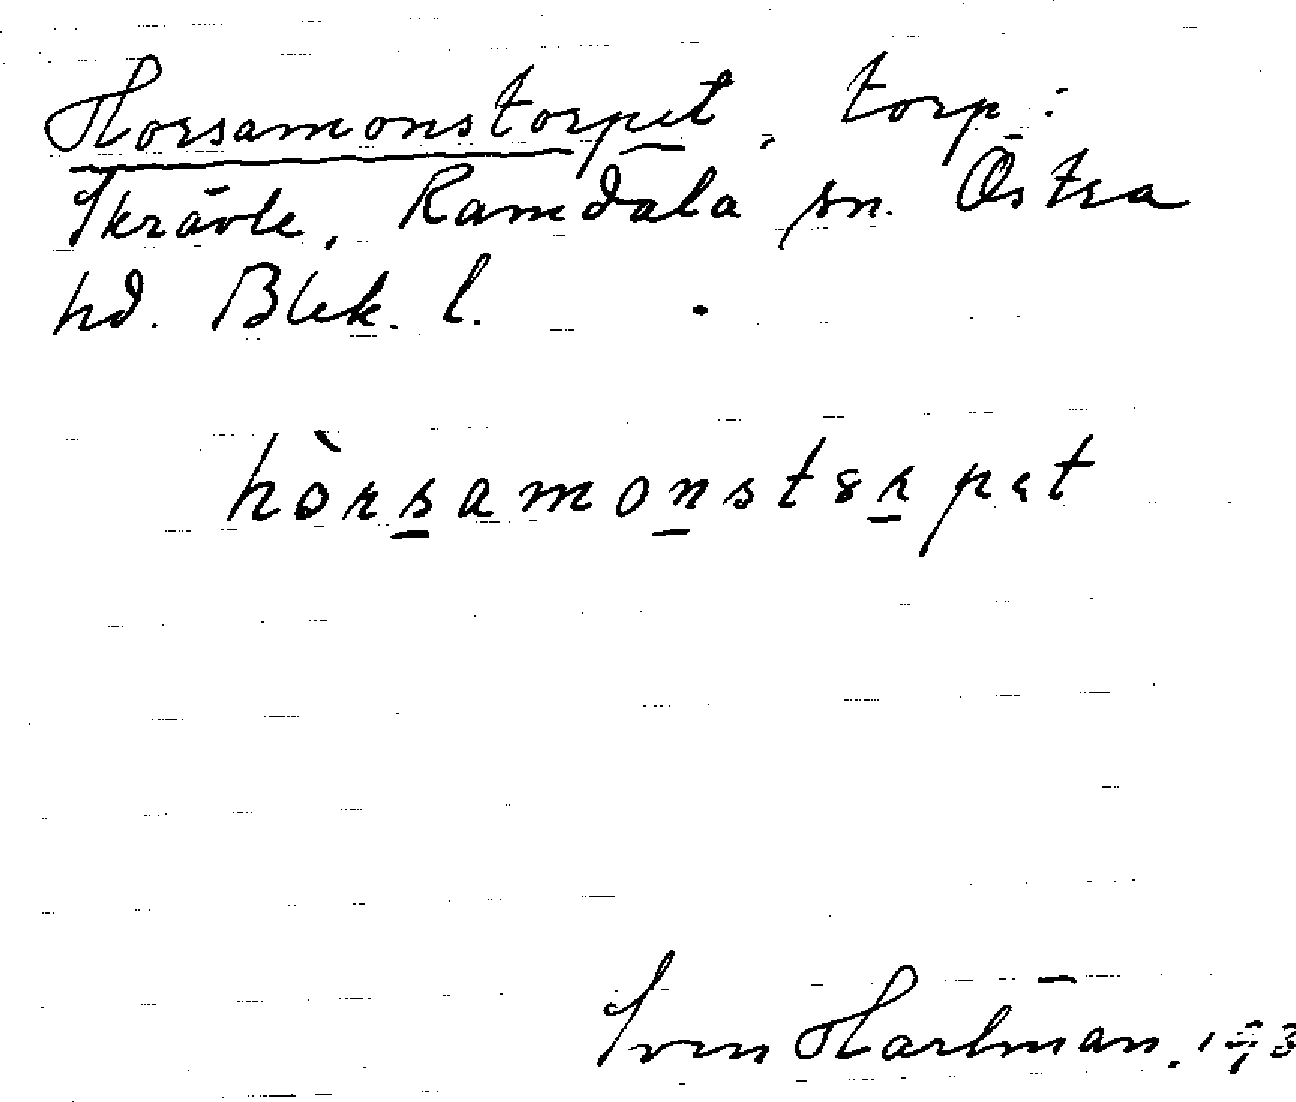 Horsamonstorpet, torp i
Skrävle, Ramdala sn. Östra
hd. Blek. l.
hòrsamonstɞrpɛt
Sven Hartman.